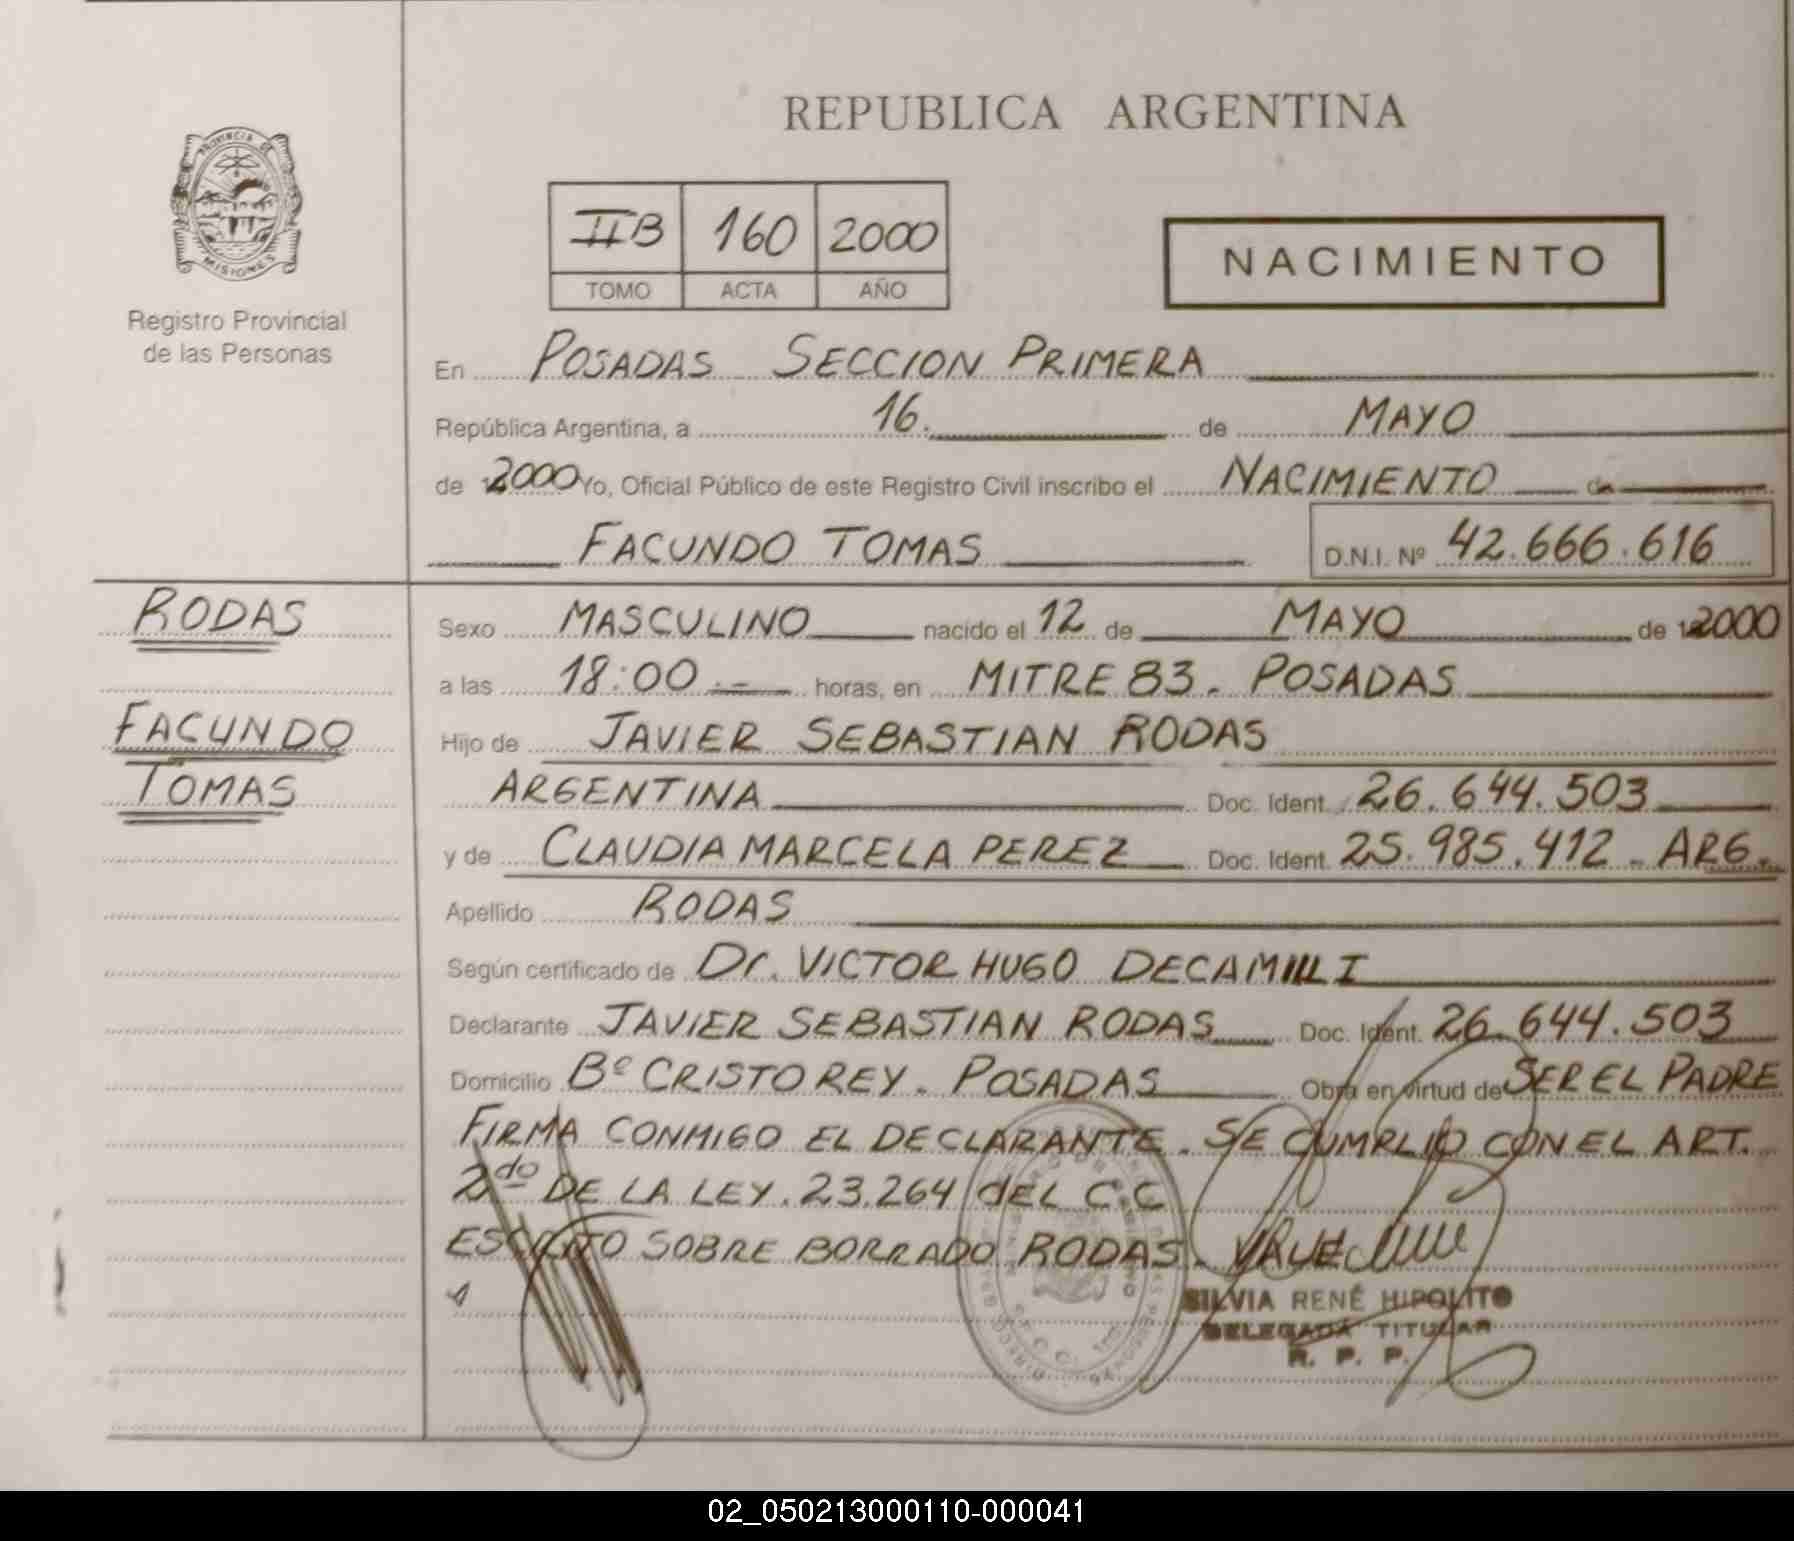 REPUBLICA ARGENTINA
PROVINCIA DE
MISIONES
Registro Provincial
de las Personas
IIB 160 2000
TOMO ACTA AÑO
NACIMIENTO
En POSADAS SECCION PRIMERA
República Argentina, a 16. de MAYO
de 2000 Yo, Oficial Público de este Registro Civil inscribo el NACIMIENTO de
FACUNDO TOMAS D.N.I. Nº 42.666.616
RODAS
FACUNDO
TOMAS
Sexo MASCULINO nacido el 12 de MAYO de 2000
a las 18:00.- horas, en MITRE 83. POSADAS
Hijo de JAVIER SEBASTIAN RODAS
ARGENTINA Doc. Ident. 26.644.503
y de CLAUDIA MARCELA PEREZ Doc. Ident. 25.985.412 - ARG.
Apellido RODAS
Según certificado de Dr. VICTOR HUGO DECAMILLI
Declarante JAVIER SEBASTIAN RODAS Doc. Ident. 26.644.503
Domicilio Bº CRISTO REY. POSADAS Obra en virtud de SER EL PADRE
FIRMA CONMIGO EL DECLARANTE. SE CUMPLIO CON EL ART.
2do DE LA LEY. 23.264 DEL C.C
ESCRITO SOBRE BORRADO RODAS. VALE
SILVIA RENÉ HIPOLITO
DELEGADA TITULAR
R. P. P.
02_050213000110-000041